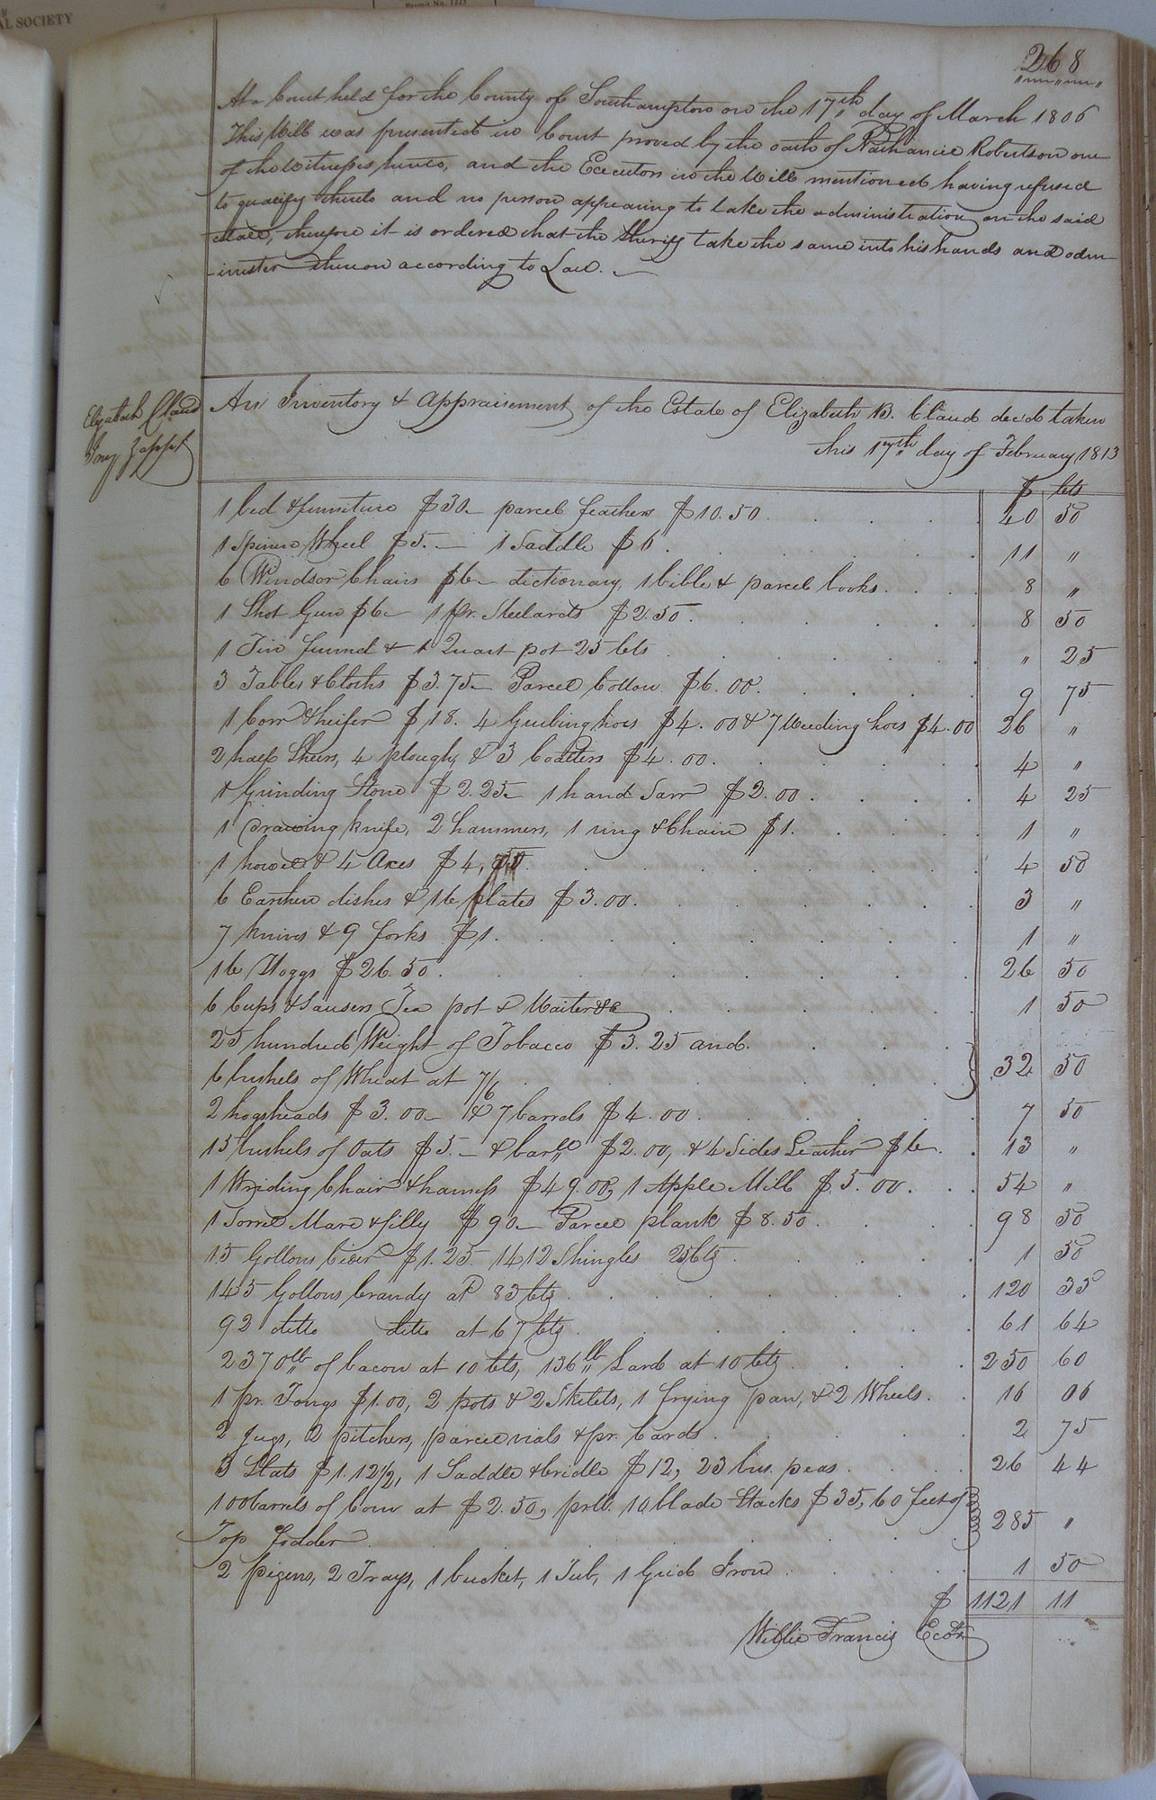 AL SOCIETY
Permit No. 1225
268
At a Court held for the County of Southampton on the 17th day of March 1806
This Will was presented in Court proved by the oath of Nathaniel Robertson one
of the Witnesses hereto, and the Executors in the Will mentioned having refused
to qualify thereto and no person appearing to take the administration on the said
estate, therefore it is ordered that the Sheriff take the same into his hands and adm-
inister thereon according to Law.
Elizabeth Claud
Invy & appt
An Inventory & Appraisement of the Estate of Elizabeth B. Claud decd taken
this 17th day of February 1813
$ Cts
1 bed & furniture $30 - parcel feathers $10.50 40 50
1 Spinn Wheel $5. - 1 Saddle $6. 11 "
6 Windsor Chairs $6 - dictionary, 1 bible & parcel books 8 "
1 Shot Gun $6 - 1 pr. Steelards $2.50. 8 50
1 Tin funnel & 1 Quart pot 25 Cts " 25
3 Tables & Cloths $3.75 - Parcel Cotton $6.00. 9 75
1 Cow & heifer $18. 4 Grubing hoes $4.00 & 7 Weeding hoes $4.00 26 "
2 half Shears, 4 ploughs & 3 $4.00. 4 "
1 Grinding Stone $2.25 - 1 hand Saw $2.00. 4 25
1 Drawing knife, 2 hammers, 1 ring & Chain $1. 1 "
1 howel & 4 Axes $4, 50 4 50
6 Earthen dishes & 16 plates $3.00. 3 "
7 knives & 9 forks $1. 1 "
16 Hoggs $26.50. 26 50
6 Cups & Saucers Tea pot & Waiter &c 1 50
25 hundred Weight of Tobacco $3.25 and
6 bushels of Wheat at 7/6 32 50
2 hogsheads $3.00 - & 7 barrels $4.00. 7 50
15 bushels of Oats $5. - & barll $2.00, & 4 Sides Leather $6. 13 "
1 Wriding Chair & harness $49.00, 1 Apple Mill $5.00. 54 "
1 Sorrel Mare & filly $90 - Parcel plank $8.50. 98 50
15 Gollons Cider $1.25 1412 Shingles 25 Cts 1 50
145 Gollons brandy at 83 Cts 120 35
92 ditto ditto at 67 Cts 61 64
2370 lb of bacon at 10 Cts, 136 lb Lard at 10 Cts 250 60
1 pr. Tongs $1.00, 2 pots & 2 Skilets, 1 frying pan, & 2 Wheels. 16 06
2 Jugs, 2 pitchers, parcel vials & pr. Cards. 2 75
3 Slats $1.12½, 1 Saddle & bridle $12, 23 bus. peas 26 44
100 barrels of Corn at $2.50, prll. 10 blade Stacks $35, 60 feet of
Top Fodder 285 "
2 Pigens, 2 Trays, 1 bucket, 1 Tub, 1 Grid Iron 1 50
$ 1121 11
Willie Francis Ecotr